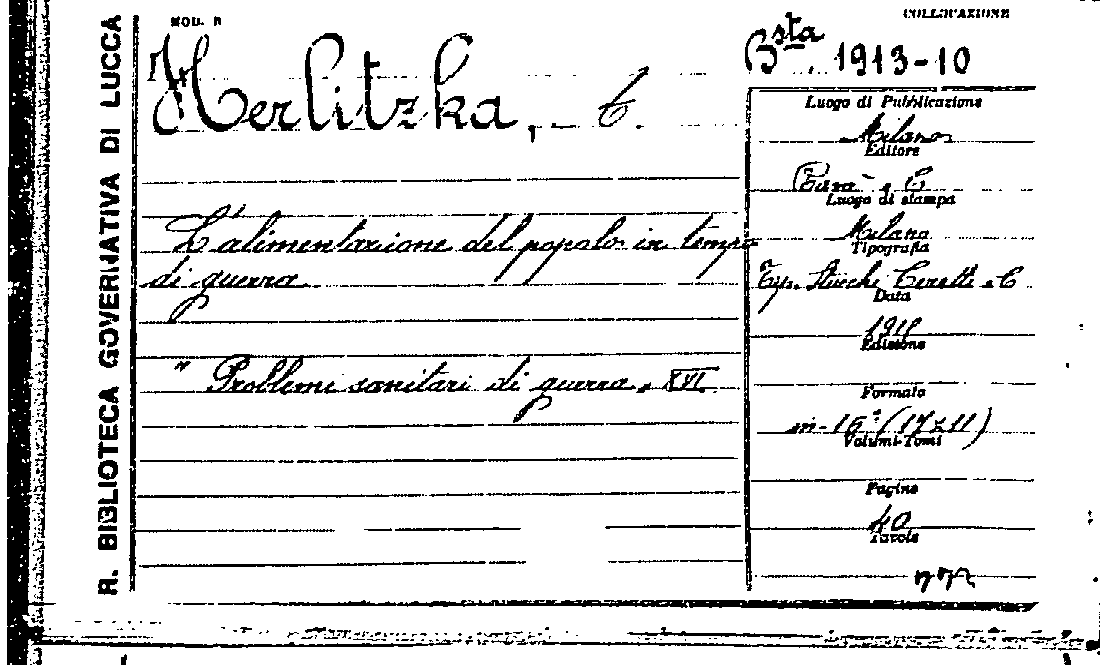 R. BIBLIOTECA GOVERNATIVA DI LUCCA
MOD. B
COLLOCAZIONE
Bsta 1913-10
Herlitzka,
L'alimentazione del popolo in tempo
di guerra
" Problemi sanitari di guerra " XVI
Luogo di Pubblicazione
Milano
Editore
Luogo di stampa
Milano
Tipografia
Tip. Stucchi Ceretti e C
Data
Edizione
Formato
in-16° (17x11)
Volumi-Tomi
Pagine
40
Tavole